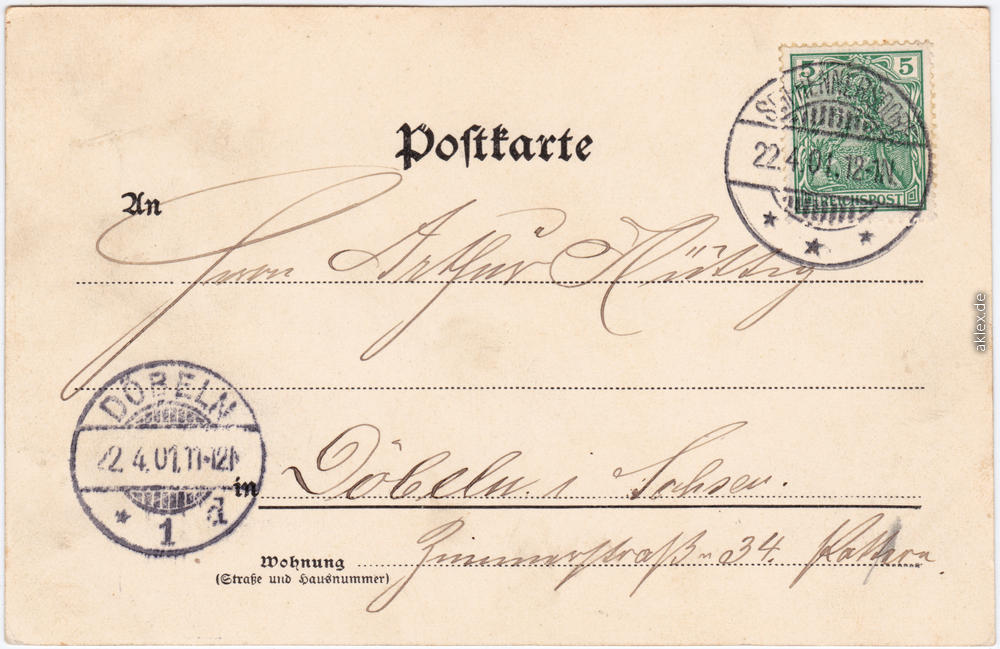 Postkarte
5 5
SEIFHENNERSDORF
22.4.01.12-1N.
REICHSPOST
An
Herrn Arthur Hüttig
DÖBELN
22.4.01.11-12N
* 1 d
in Döbeln i. Sachsen.
Wohnung
(Straße und Hausnummer)
Zimmerstraß 34.
aklex.de